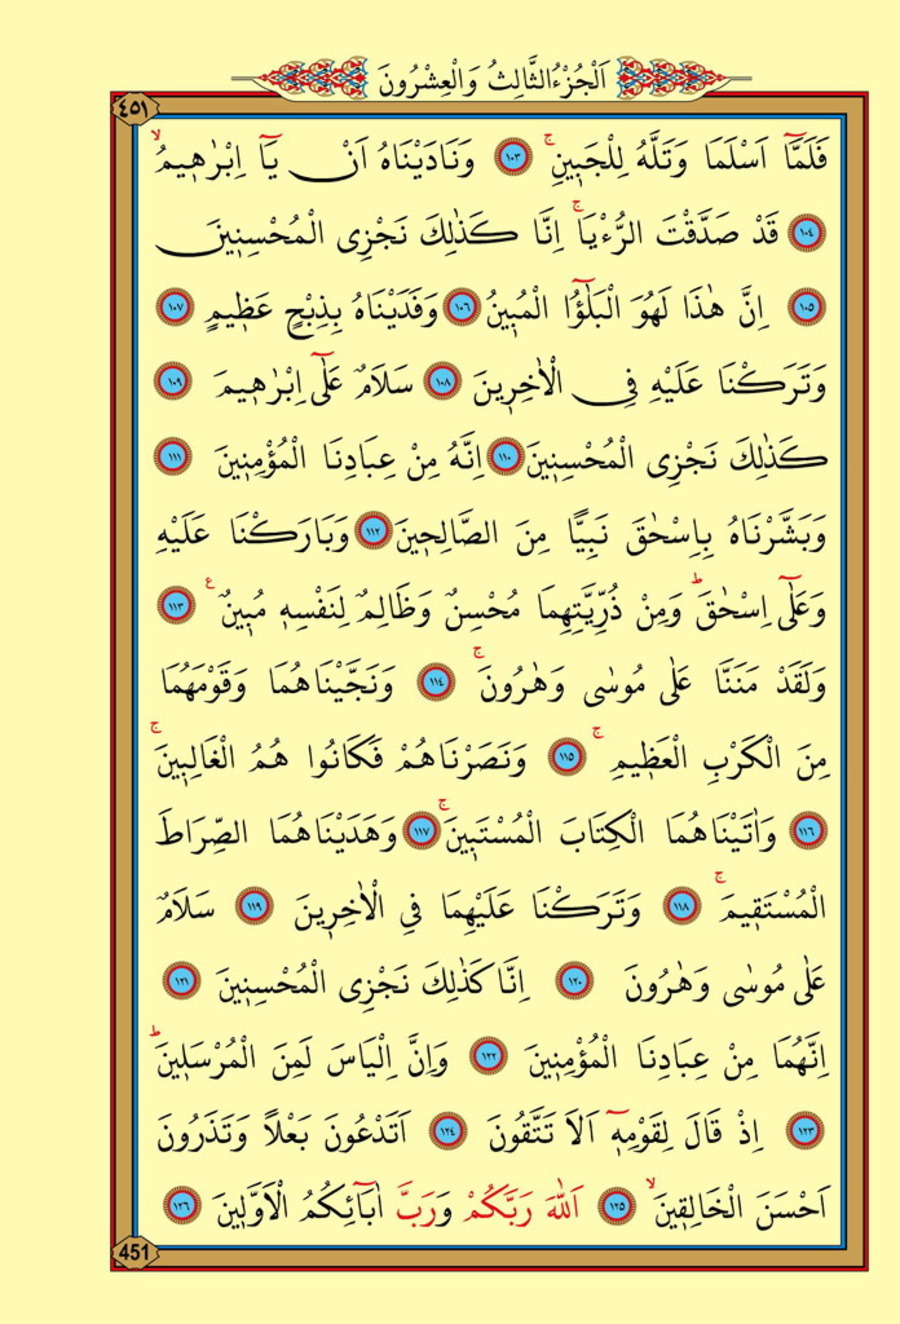 اَلْجُزْءُ الثَّالِثُ وَالْعِشْرُونَ
٤٥١
فَلَمَّٓا اَسْلَمَا وَتَلَّهُ لِلْجَب۪ينِۚ ﴿١٠٣﴾ وَنَادَيْنَاهُ اَنْ يَٓا اِبْرٰه۪يمُۙ
﴿١٠٤﴾ قَدْ صَدَّقْتَ الرُّءْيَاۚ اِنَّا كَذٰلِكَ نَجْزِى الْمُحْسِن۪ينَ
﴿١٠٥﴾ اِنَّ هٰذَا لَهُوَ الْبَلٰٓؤُا الْمُب۪ينُ ﴿١٠٦﴾ وَفَدَيْنَاهُ بِذِبْحٍ عَظ۪يمٍ ﴿١٠٧﴾
وَتَرَكْنَا عَلَيْهِ فِي الْاٰخِر۪ينَ ﴿١٠٨﴾ سَلَامٌ عَلٰٓى اِبْرٰه۪يمَ ﴿١٠٩﴾
كَذٰلِكَ نَجْزِى الْمُحْسِن۪ينَ ﴿١١٠﴾ اِنَّهُ مِنْ عِبَادِنَا الْمُؤْمِن۪ينَ ﴿١١١﴾
وَبَشَّرْنَاهُ بِاِسْحٰقَ نَبِيًّا مِنَ الصَّالِح۪ينَ ﴿١١٢﴾ وَبَارَكْنَا عَلَيْهِ
وَعَلٰٓى اِسْحٰقَۜ وَمِنْ ذُرِّيَّتِهِمَا مُحْسِنٌ وَظَالِمٌ لِنَفْسِه۪ مُب۪ينٌ۟ ﴿١١٣﴾
وَلَقَدْ مَنَنَّا عَلٰى مُوسٰى وَهٰرُونَۚ ﴿١١٤﴾ وَنَجَّيْنَاهُمَا وَقَوْمَهُمَا
مِنَ الْكَرْبِ الْعَظ۪يمِۚ ﴿١١٥﴾ وَنَصَرْنَاهُمْ فَكَانُوا هُمُ الْغَالِب۪ينَۚ
﴿١١٦﴾ وَاٰتَيْنَاهُمَا الْكِتَابَ الْمُسْتَب۪ينَۚ ﴿١١٧﴾ وَهَدَيْنَاهُمَا الصِّرَاطَ
الْمُسْتَق۪يمَۚ ﴿١١٨﴾ وَتَرَكْنَا عَلَيْهِمَا فِي الْاٰخِر۪ينَ ﴿١١٩﴾ سَلَامٌ
عَلٰى مُوسٰى وَهٰرُونَ ﴿١٢٠﴾ اِنَّا كَذٰلِكَ نَجْزِى الْمُحْسِن۪ينَ ﴿١٢١﴾
اِنَّهُمَا مِنْ عِبَادِنَا الْمُؤْمِن۪ينَ ﴿١٢٢﴾ وَاِنَّ اِلْيَاسَ لَمِنَ الْمُرْسَل۪ينَۜ
﴿١٢٣﴾ اِذْ قَالَ لِقَوْمِه۪ٓ اَلَا تَتَّقُونَ ﴿١٢٤﴾ اَتَدْعُونَ بَعْلًا وَتَذَرُونَ
اَحْسَنَ الْخَالِق۪ينَۙ ﴿١٢٥﴾ اَللّٰهَ رَبَّكُمْ وَرَبَّ اٰبَٓائِكُمُ الْاَوَّل۪ينَ ﴿١٢٦﴾
451